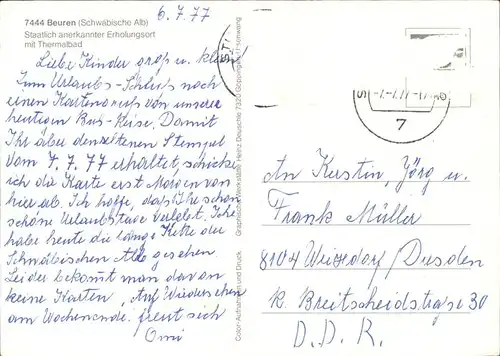 7444 Beuren (Schwäbische Alb)
Staatlich anerkannter Erholungsort
mit Thermalbad
6.7.77
Liebe Kinder groß u. klein
Zum Urlaubs-Schluß noch
einen Kartengruß von unserer
heutigen Bus-Reise. Damit
Ihr aber denseltenen Stempel
vom 7.7.77 erhaltet, schicke
ich die Karte erst Morgen von
hier ab. Ich hoffe, daß Ihr schon
schöne Urlaubstage verlebt. Ich
habe heute die lange Kette der
Schwäbischen Alb gesehen.
Leider bekommt man davon
keine Karten, Auf Wiedersehen
am Wochenende. freut sich
Omi
Color-Aufnahme und Druck: Graphische Werkstätte Heinz Deuschle 7320 Göppingen
-7.-7.77-
7
An Kerstin, Jörg u.
Frank Müller
8104 Weixdorf/Dresden
K. Breitscheidstraße 30
D.D.R.